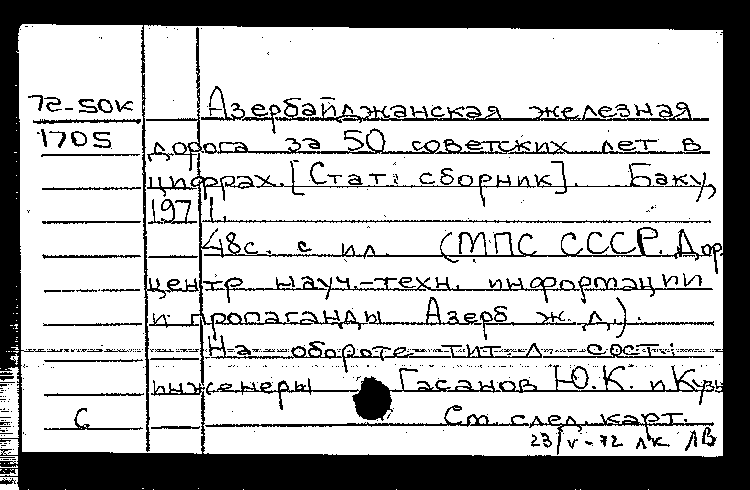 72-50к
1705
Азербайджанская железная
дорога за 50 советских лет в
цифрах. [Стат. сборник]. Баку,
1971.
48с. с ил. (МПС СССР. Дор
центр науч.-техн. информации
и пропаганды Азерб. ж.д.).
На обороте тит. л. сост.:
инженеры Гасанов Ю.К. и Кузн
С См. след. карт.
23/V-72 лк ЛВ